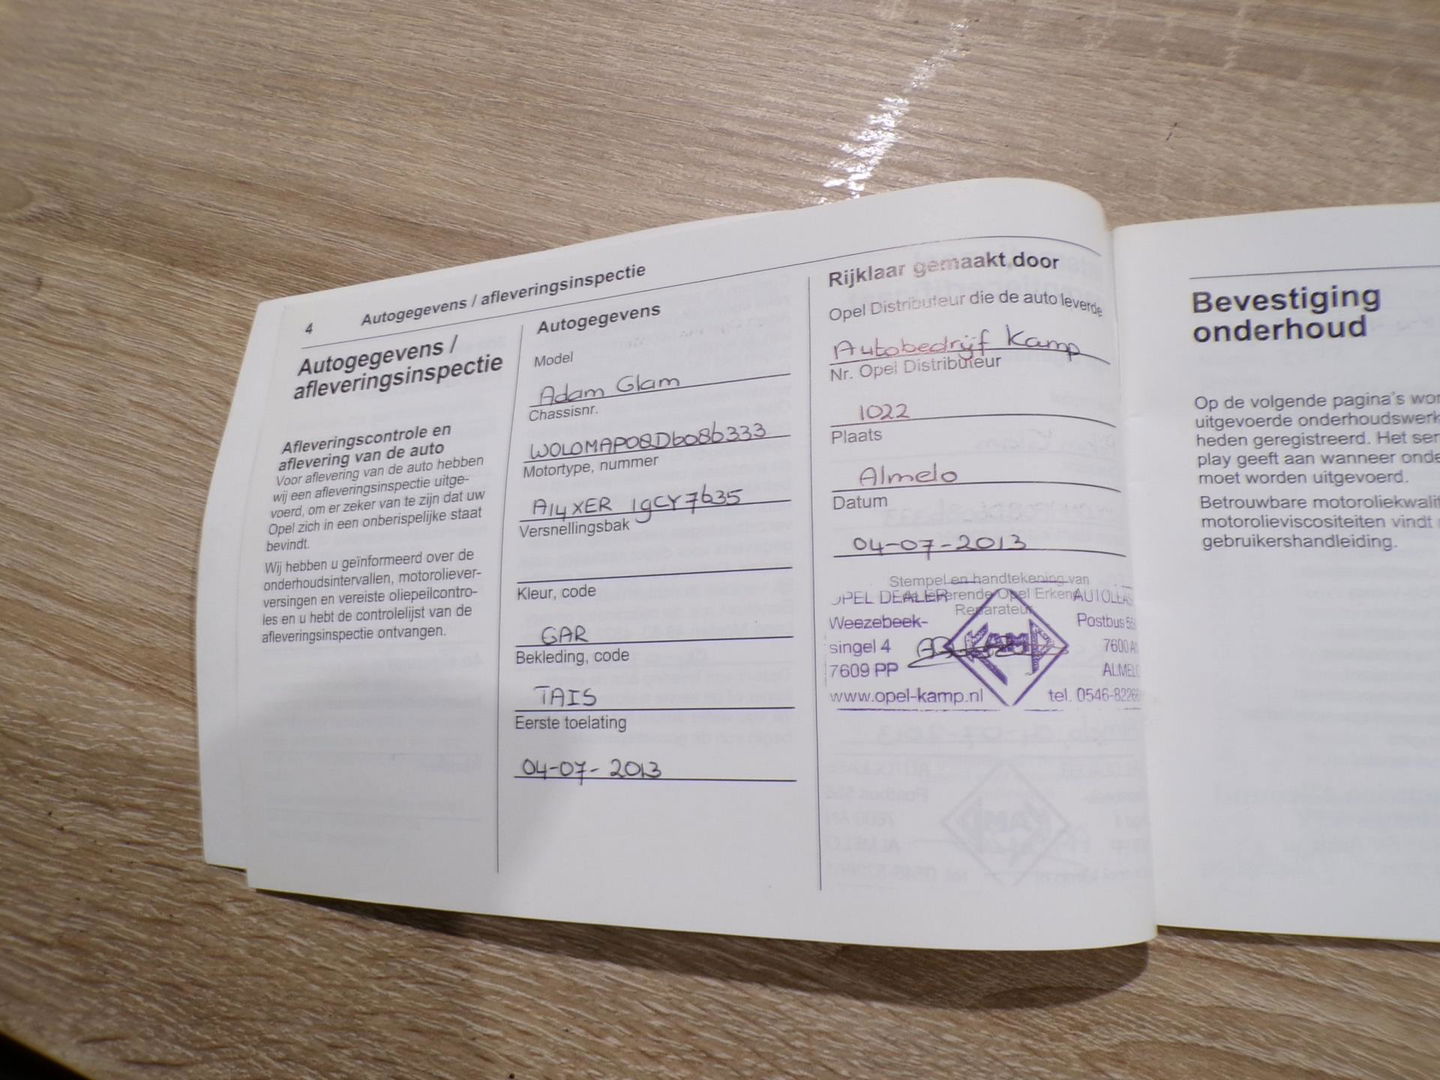 4
Autogegevens / afleveringsinspectie
Autogegevens /
afleveringsinspectie
Afleveringscontrole en
aflevering van de auto
Voor aflevering van de auto hebben
wij een afleveringsinspectie uitge-
voerd, om er zeker van te zijn dat uw
Opel zich in een onberispelijke staat
bevindt.
Wij hebben u geïnformeerd over de
onderhoudsintervallen, motoroliever-
versingen en vereiste oliepeilcontro-
les en u hebt de controlelijst van de
afleveringsinspectie ontvangen.
Autogegevens
Model
Adam Glam
Chassisnr.
WOLOMAP08D6086333
Motortype, nummer
A14XER 19CY7635
Versnellingsbak
Kleur, code
GAR
Bekleding, code
TAIS
Eerste toelating
04-07-2013
Rijklaar gemaakt door
Opel Distributeur die de auto leverde
Autobedrijf Kamp
Nr. Opel Distributeur
1022
Plaats
Almelo
Datum
04-07-2013
Stempel en handtekening van
de leverende Opel Erkend
Reparateur
OPEL DEALER
Weezebeek-
singel 4
7609 PP
www.opel-kamp.nl
KAMP
Postbus
7600
tel. 0546-
Bevestiging
onderhoud
Op de volgende pagina's wor
uitgevoerde onderhoudswerk
heden geregistreerd. Het ser
play geeft aan wanneer onde
moet worden uitgevoerd.
Betrouwbare motoroliekwalit
motorolieviscositeiten vindt
gebruikershandleiding.